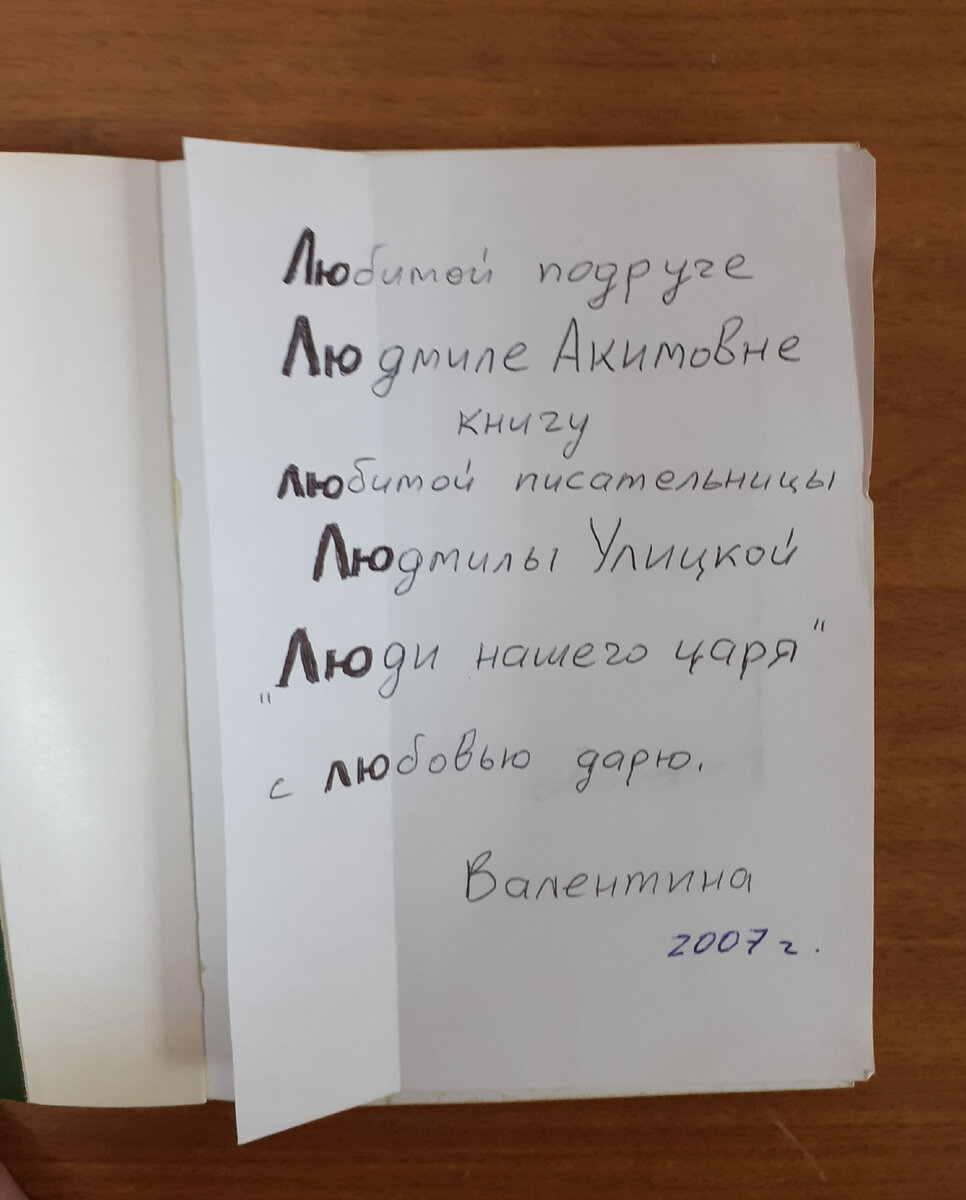 Любимой подруге
Людмиле Акимовне
книгу
любимой писательницы
Людмилы Улицкой
"Люди нашего царя"
с любовью дарю.
Валентина
2007 г.